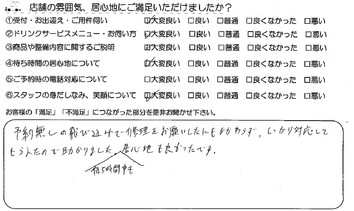 店舗の雰囲気、居心地にご満足いただけましたか？
①受付・お出迎え・ご用件伺い ☑大変良い □良い □普通 □良くなかった □悪い
②ドリンクサービスメニュー・お伺い方 ☑大変良い □良い □普通 □良くなかった □悪い
③商品や整備内容に関するご説明 ☑大変良い □良い □普通 □良くなかった □悪い
④待ち時間の居心地について ☑大変良い □良い □普通 □良くなかった □悪い
⑤ご予約時の電話対応について □大変良い □良い □普通 □良くなかった □悪い
⑥スタッフの身だしなみ、笑顔について ☑大変良い □良い □普通 □良くなかった □悪い
お客様の「満足」「不満足」につながった部分を是非お聞かせ下さい。
予約無しの飛び込みで修理をお願いしたにもかかわらず、しっかり対応して
もらえたので助かりました。居心地も良かったです。
待ち時間中も